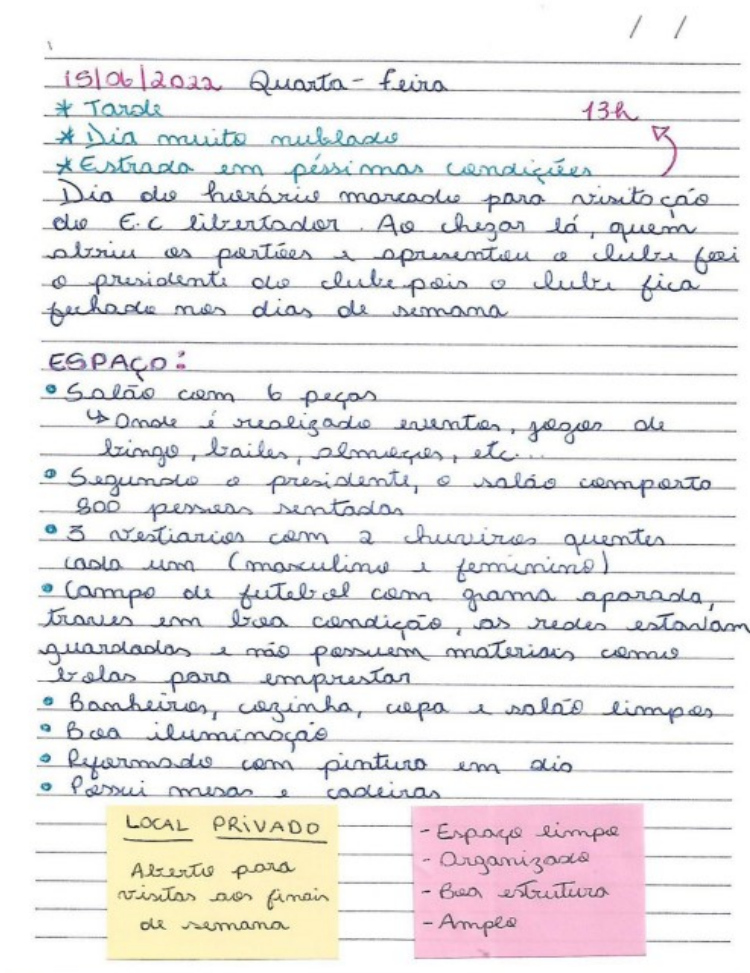 / /
15/06/2022 Quarta-feira
* Tarde
13h
* Dia muito nublado
* Estrada em péssimas condições
Dia do horário marcado para visitação
do E.C libertador. Ao chegar lá, quem
abriu os portões e apresentou o clube foi
o presidente do clube pois o clube fica
fechado nos dias de semana
ESPAÇO:
• Salão com 6 peças
↳ Onde é realizado eventos, jogos de
bingo, bailes, almoços, etc...
• Segundo o presidente, o salão comporta
800 pessoas sentadas
• 3 vestiarios com 2 chuviros quentes
cada um (masculino e feminino)
• Campo de futebol com grama aparada,
traves em boa condição, as redes estavam
guardadas e não possuem materiais como
bolas para emprestar
• Banheiros, cozinha, copa e salão limpos
• Boa iluminação
• Reformado com pintura em dia
• Possui mesas e cadeiras
LOCAL PRIVADO
Aberto para
visitas aos finais
de semana
- Espaço limpo
- Organizado
- Boa estrutura
- Amplo